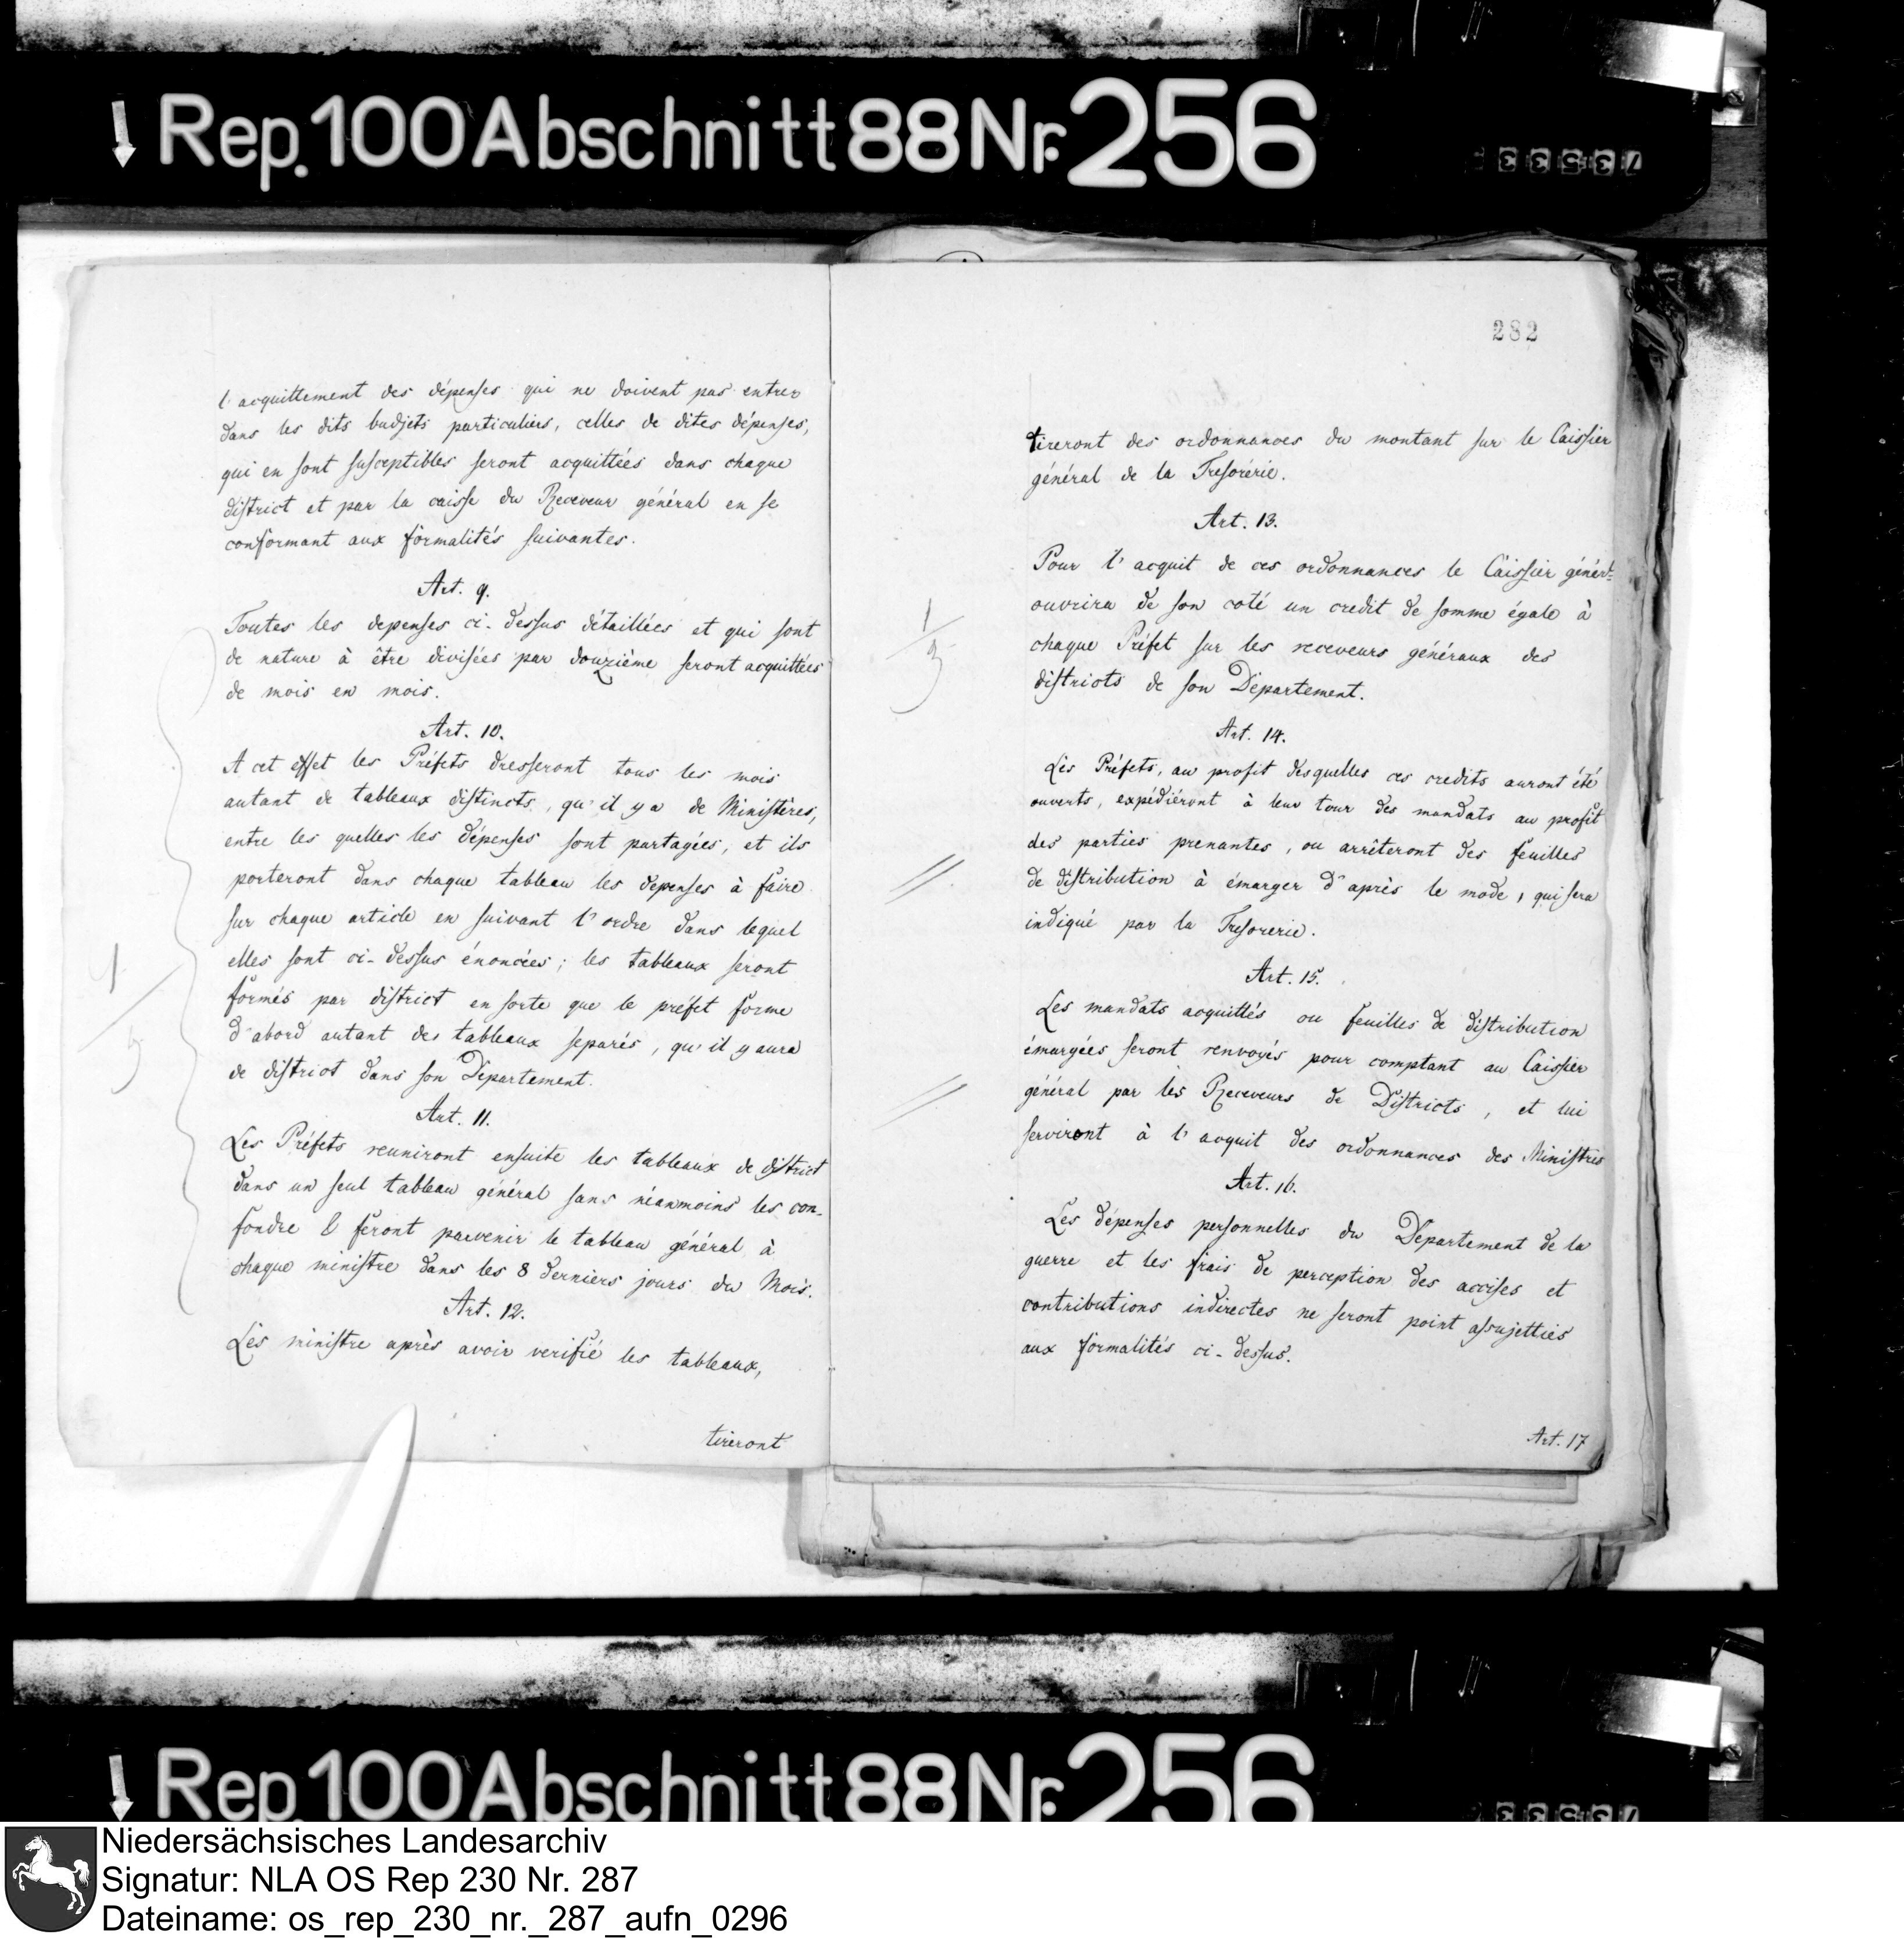 Rep. 100 Abschnitt 88 Nr. 256
73533
l'acquittement des dépenses qui ne doivent pas entrer
dans les dits budjets particuliers, celles de dites dépenses,
qui en sont susceptibles seront acquittées dans chaque
district et par la caisse du Receveur général en se
conformant aux formalités suivantes.
Art. 9.
Toutes les depenses ci-dessus détaillées et qui sont
de nature à être divisées par douzième seront acquittées
de mois en mois.
Art. 10.
A cet effet les Préfets dresseront tous les mois
autant de tableaux distincts, qu'il y a de Ministères,
entre les quelles les dépenses sont partagées, et ils
porteront dans chaque tableau les depenses à faire
sur chaque article en suivant l'ordre dans lequel
elles sont ci-dessus énoncées; les tableaux seront
formés par district en sorte que le préfet forme
d'abord autant des tableaux separés, qu'il y aura
de district dans son Département.
Art. 11.
Les Préfets reuniront ensuite les tableaux de district
dans un seul tableau général sans néanmoins les con-
fondre & feront parvenir le tableau général à
chaque ministre dans les 8 derniers jours du Mois.
Art. 12.
Les ministre après avoir verifié les tableaux,
tireront
1/3
282
tireront des ordonnances du montant sur le Caissier
général de la Tresorérie.
Art. 13.
Pour l'acquit de ces ordonnances le Caissier général
ouvrira de son coté un credit de somme égale à
chaque Préfet sur les receveurs généraux des
districts de son Département.
1/3
Art. 14.
Les Préfets, au profit desquelles ces credits auront été
ouverts, expédiéront à leur tour des mandats au profit
des parties prenantes, ou arrêteront des feuilles
de distribution à émarger d'après le mode, qui sera
indiqué par la Tresorerie.
Art. 15.
Les mandats acquittés ou feuilles de distribution
émargées seront renvoyés pour comptant au Caissier
général par les Receveurs de Districts, et lui
serviront à l'acquit des ordonnances des Ministres
Art. 16.
Les dépenses personnelles du Département de la
guerre et les frais de perception des accises et
contributions indirectes ne seront point assujetties
aux formalités ci-dessus.
Art. 17
Rep. 100 Abschnitt 88 Nr. 256
73533
Niedersächsisches Landesarchiv
Signatur: NLA OS Rep 230 Nr. 287
Dateiname: os_rep_230_nr._287_aufn_0296